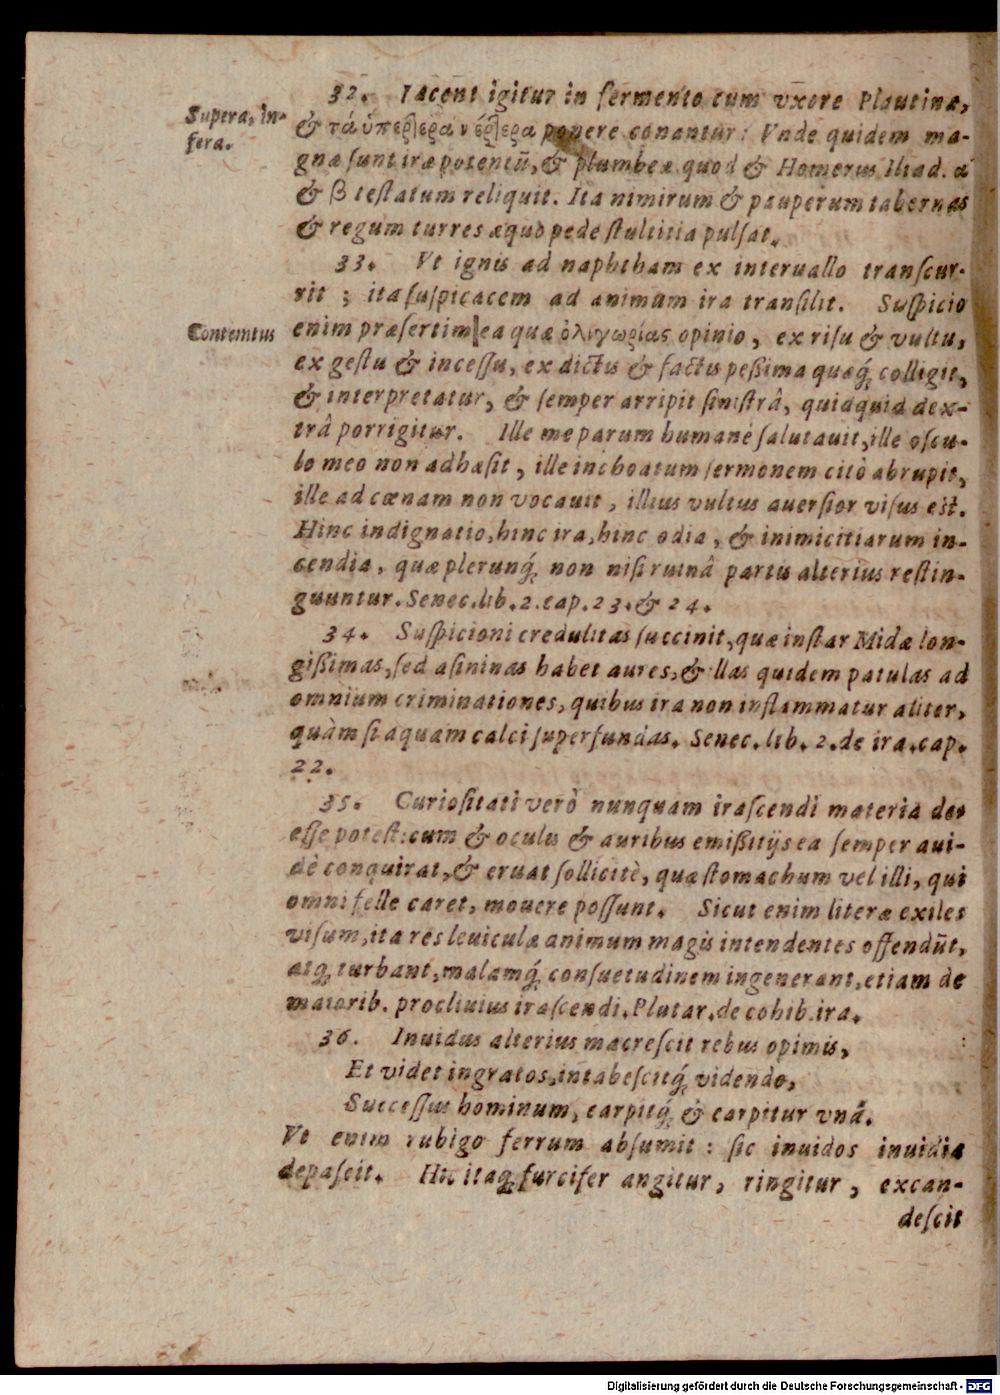 32. Iacent igitur in fermento cum vxore Plautina,
Supera, in-
fera.
& τὰ ὑπέρτερα νέρτερα ponere conantur: Vnde quidem ma-
gnæ sunt iræ potentũ, & plumbeæ quod & Homerus Iliad. α
& β testatum reliquit. Ita nimirum & pauperum tabernas
& regum turres æquo pede stultitia pulsat.
33. Vt ignis ad naphtham ex interuallo transcur-
rit ; ita suspicacem ad animum ira transilit. Suspicio
Contemtus
enim præsertim ea quæ ὀλιγωρίας opinio, ex risu & vultu,
ex gestu & incessu, ex dictis & factis peßima quæq́; colligit,
& interpretatur, & semper arripit sinistrâ, quidquid dex-
trâ porrigitur. Ille me parum humanè salutauit, ille oscu-
lo meo non adhæsit, ille inchoatum sermonem citò abrupit,
ille ad cœnam non vocauit, illius vultus auersior visus est.
Hinc indignatio, hinc ira, hinc odia, & inimicitiarum in-
cendia, quæ plerunq́; non nisi ruinâ partis alterius restin-
guuntur. Senec. lib. 2. cap. 23. & 24.
34. Suspicioni credulitas succinit, quæ instar Midæ lon-
gißimas, sed asininas habet aures, & illas quidem patulas ad
omnium criminationes, quibus ira non inflammatur aliter,
quàm si aquam calci superfundas. Senec. lib. 2. de ira. cap.
22.
35. Curiositati verò nunquam irascendi materia de-
esse potest: cum & oculis & auribus emißitijs ea semper aui-
dè conquirat, & eruat sollicitè, quæ stomachum vel illi, qui
omni felle caret, mouere possunt. Sicut enim literæ exiles
visum, ita res leuiculæ animum magis intendentes offendũt,
atq; turbant, malamq́; consuetudinem ingenerant, etiam de
maiorib. procliuius irascendi. Plutar. de cohib. ira.
36. Inuidus alterius macrescit rebus opimis,
Et videt ingratos, intabescitq́; videndo,
Successus hominum, carpitq́; & carpitur vnà.
Vt enim rubigo ferrum absumit : sic inuidos inuidia
depascit. Hic itaq; furcifer angitur, ringitur, excan-
descit
Digitalisierung gefördert durch die Deutsche Forschungsgemeinschaft - DFG